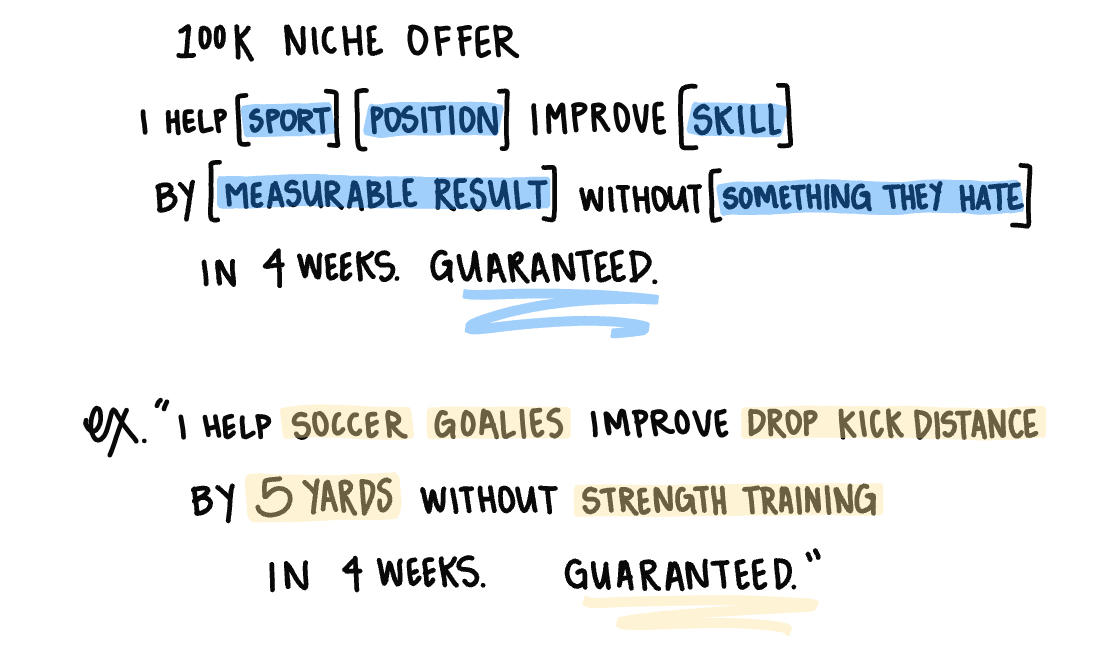 100K NICHE OFFER
I HELP [SPORT] [POSITION] IMPROVE [SKILL]
BY [MEASURABLE RESULT] WITHOUT [SOMETHING THEY HATE]
IN 4 WEEKS. GUARANTEED.
ex. "I HELP SOCCER GOALIES IMPROVE DROP KICK DISTANCE
BY 5 YARDS WITHOUT STRENGTH TRAINING
IN 4 WEEKS. GUARANTEED."